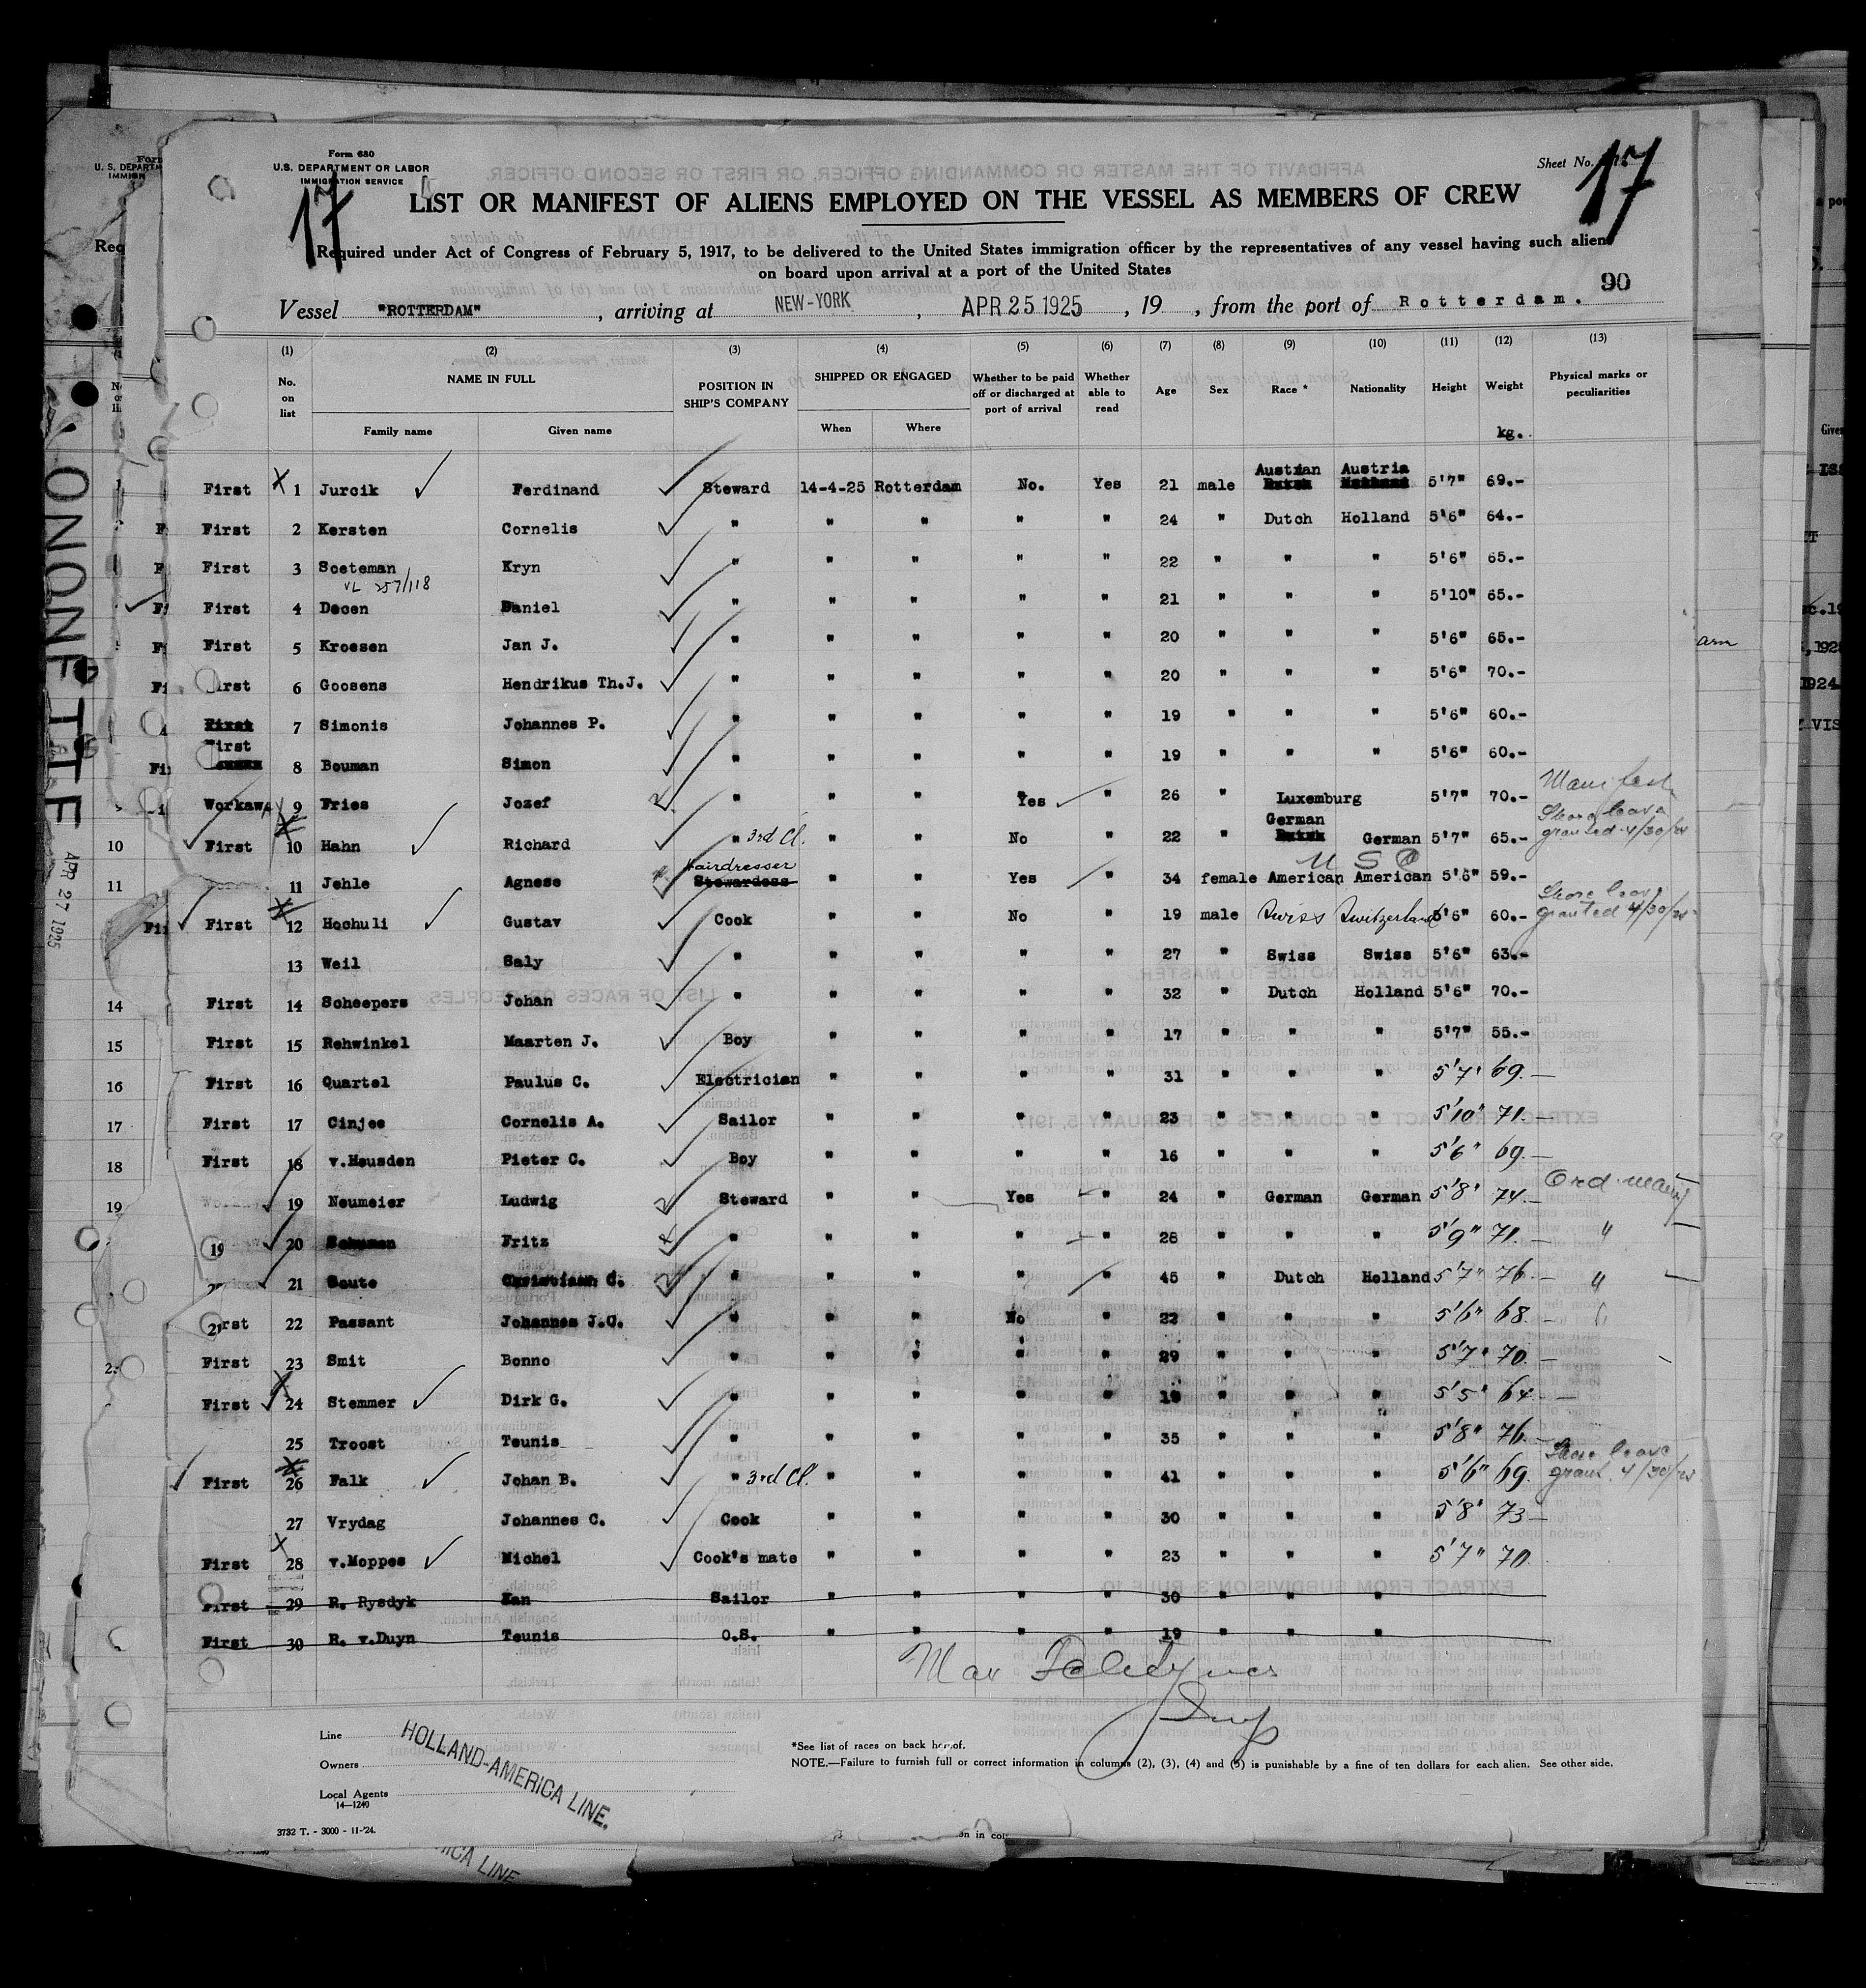 Form 680
U.S. DEPARTMENT OR LABOR
IMMIGRATION SERVICE
Sheet No.
17
17
LIST OR MANIFEST OF ALIENS EMPLOYED ON THE VESSEL AS MEMBERS OF CREW
Required under Act of Congress of February 5, 1917, to be delivered to the United States immigration officer by the representatives of any vessel having such aliens
on board upon arrival at a port of the United States
90
Vessel "ROTTERDAM", arriving at NEW-YORK, APR 25 1925, 19 , from the port of Rotterdam.
(1) (2) (3) (4) (5) (6) (7) (8) (9) (10) (11) (12) (13)
No. on list NAME IN FULL Family name Given name POSITION IN SHIP'S COMPANY SHIPPED OR ENGAGED When Where Whether to be paid off or discharged at port of arrival Whether able to read Age Sex Race * Nationality Height Weight kg. Physical marks or peculiarities
First X 1 Jurcik Ferdinand Steward 14-4-25 Rotterdam No. Yes 21 male Austrian Austria 5'7" 69.-
First 2 Kersten Cornelis " " " " " 24 " Dutch Holland 5'6" 64.-
First 3 Soeteman Kryn " " " " " 22 " " " 5'6" 65.-
VL 257/118
First 4 Decen Daniel " " " " " 21 " " " 5'10" 65.-
First 5 Kroesen Jan J. " " " " " 20 " " " 5'6" 65.-
First 6 Goosens Hendrikus Th.J. " " " " " 20 " " " 5'6" 70.-
First 7 Simonis Johannes P. " " " " " 19 " " " 5'6" 60.-
First 8 Bouman Simon " " " " " 19 " " " 5'6" 60.-
Workaw 9 Fries Jozef " " " Yes " 26 " Luxemburg 5'7" 70.- Manifest
First 10 Hahn Richard " 3rd Cl. " " No " 22 " German German 5'7" 65.- Shore leave granted 4/30/25
U S C
11 Jehle Agnese Hairdresser Stewardess " " Yes " 34 female American American 5'6" 59.-
First 12 Hochuli Gustav Cook " " No " 19 male Swiss Switzerland 5'6" 60.- Shore leave granted 4/30/25
13 Weil Saly " " " " " 27 " Swiss Swiss 5'6" 63.-
First 14 Scheepers Johan " " " " " 32 " Dutch Holland 5'6" 70.-
First 15 Rehwinkel Maarten J. Boy " " " " 17 " " " 5'7" 55.-
First 16 Quartel Paulus C. Electrician " " " " 31 " " " 5'7" 69.-
First 17 Cinjee Cornelis A. Sailor " " " " 23 " " " 5'10" 71.-
First 18 v.Heusden Pieter C. Boy " " " " 16 " " " 5'6" 69.-
19 Neumeier Ludwig Steward " " Yes " 24 " German German 5'8" 74.- Ord
20 Schuman Fritz " " " " " 28 " " " 5'9" 71.- "
21 Soute Christiaan C. " " " " " 45 " Dutch Holland 5'7" 76.- "
22 Passant Johannes J.C. " " " No " 22 " " " 5'6" 68.-
First 23 Smit Bonno " " " " " 29 " " " 5'7" 70.-
First X 24 Stemmer Dirk G. " " " " " 19 " " " 5'5" 64.-
25 Troost Teunis " " " " " 35 " " " 5'8" 76.-
First 26 Falk Johan B. " 3rd Cl. " " " " 41 " " " 5'6" 69. Shore leave grant. 4/30/25
27 Vrydag Johannes C. Cook " " " " 30 " " " 5'8" 73-
First X 28 v.Moppes Michel Cook's mate " " " " 23 " " " 5'7" 70.
First 29 R. Rysdyk Sailor " " " " 30 " " "
First 30 R. v.Duyn Teunis O.S. " " " " 19 " " "
Max
Insp
Line
Owners
Local Agents
HOLLAND-AMERICA LINE.
14—1240
3732 T. - 3000 - 11-'24.
*See list of races on back hereof.
NOTE.—Failure to furnish full or correct information in columns (2), (3), (4) and (5) is punishable by a fine of ten dollars for each alien. See other side.
APR 27 1925